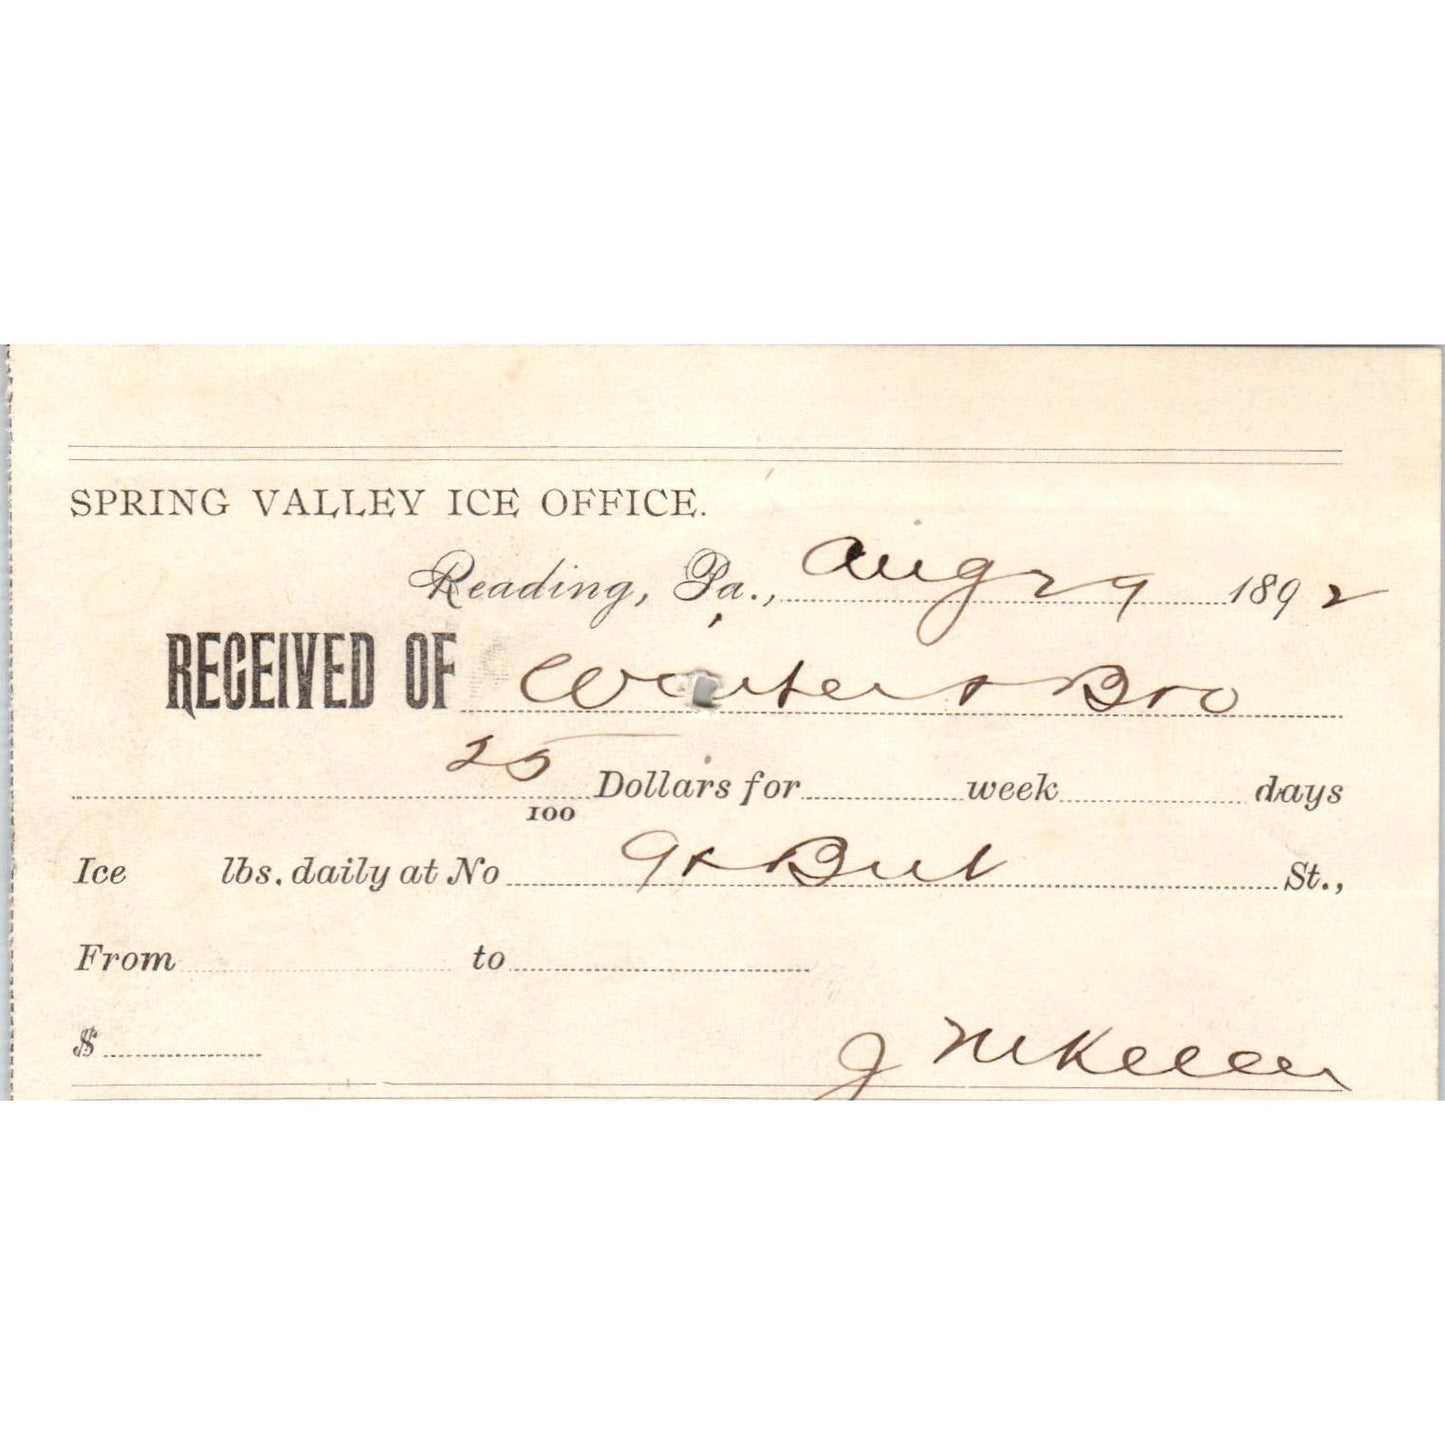 SPRING VALLEY ICE OFFICE.
Reading, Pa., Aug 29 1892
RECEIVED OF Winter & Bro
25/100 Dollars for week days
Ice lbs. daily at No 9 & But St.,
From to
$ J McKeeen